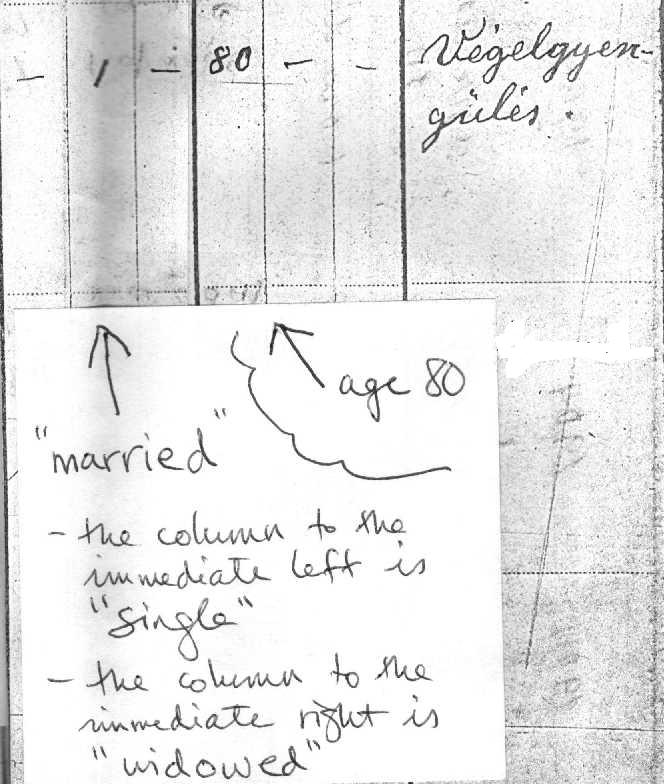 – 1 – 80 – – Végelgyen-
gülés.
age 80
"married"
- the column to the
immediate left is
"single"
- the column to the
immediate right is
"widowed"